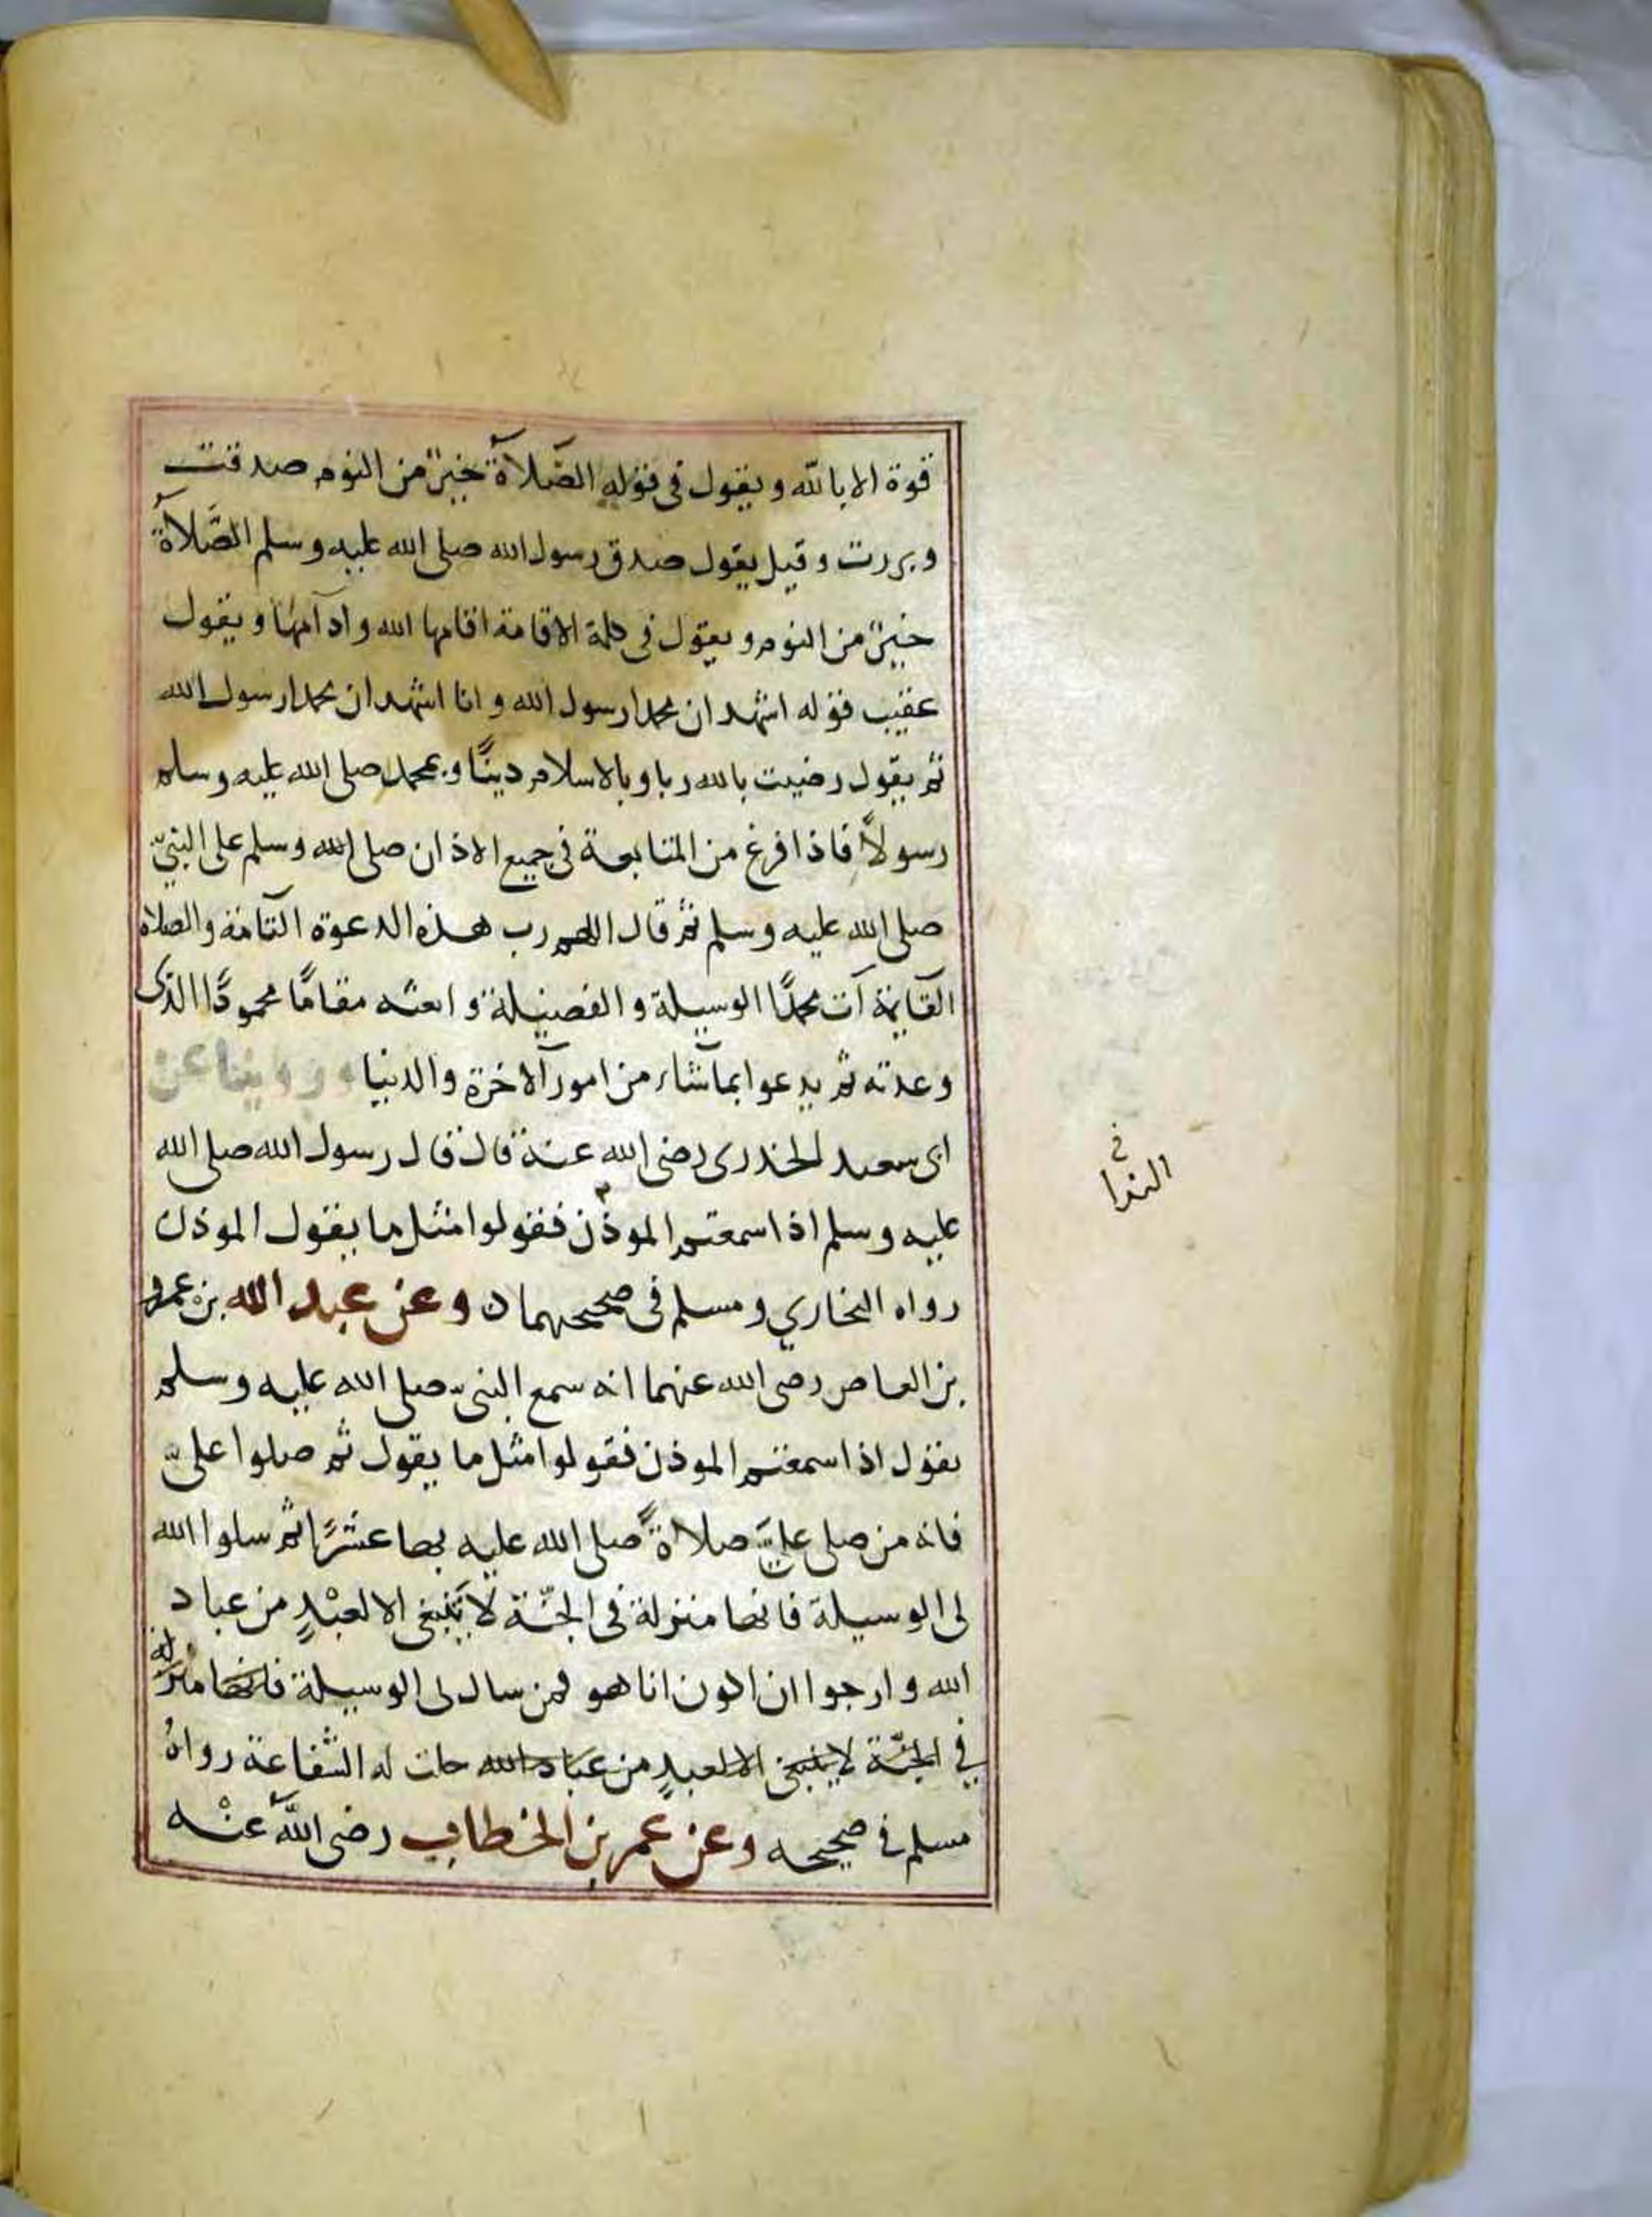 قوة الا بالله ويقول في قوله الصَّلاَة خير من النوم صدقت
وبررت وقيل يقول صدق رسول الله صلى الله عليه وسلم الصَّلاَة
خير من النوم ويقول في كلمة الاقامة اقامها الله وادامها ويقول
عقيب قوله اشهد ان محمدا رسول الله وانا اشهد ان محمدا رسول الله
ثم يقول رضيت بالله ربا وبالاسلام دينًا وبمحمد صلى الله عليه وسلم
رسولاً فاذا فرغ من المتابعة في جميع الاذان صلى الله وسلم على النبيّ
صلى الله عليه وسلم ثم قال اللهم رب هذه الدعوة التامة والصلاة
القايمة آت محمدًا الوسيلة والفضيلة وابعثه مقامًا محمودًا الذى
وعدته ثم يدعوا بما شاء من امور الاخرة والدنيا وروينا عن
ابى سعيد الخدرى رضى الله عنه قال قال رسول الله صلى الله
عليه وسلم اذا سمعتم الموذن فقولوا مثل ما يقول الموذن
في
الندا
رواه البخاري ومسلم في صحيحهما ن وعن عبد الله بن عمرو
بن العاص رضى الله عنهما انه سمع النبيّ صلى الله عليه وسلم
يقول اذا سمعتم الموذن فقولوا مثل ما يقول ثم صلوا علىّ
فانه من صلى عليّ صلاةً صلى الله عليه بها عشرًا ثم سلوا الله
لى الوسيلة فانها منزلة في الجنّة لا تنبغى الا لعبْدٍ من عباد
الله وارجوا ان اكون انا هو فمن سال لى الوسيلة فانها منزلة
في الجنّة لا ينبغى الا لعبدٍ من عباد الله حلت له الشفاعة رواهُ
مسلم في صحيحه وعن عمر بن الخطاب رضى الله عنْه